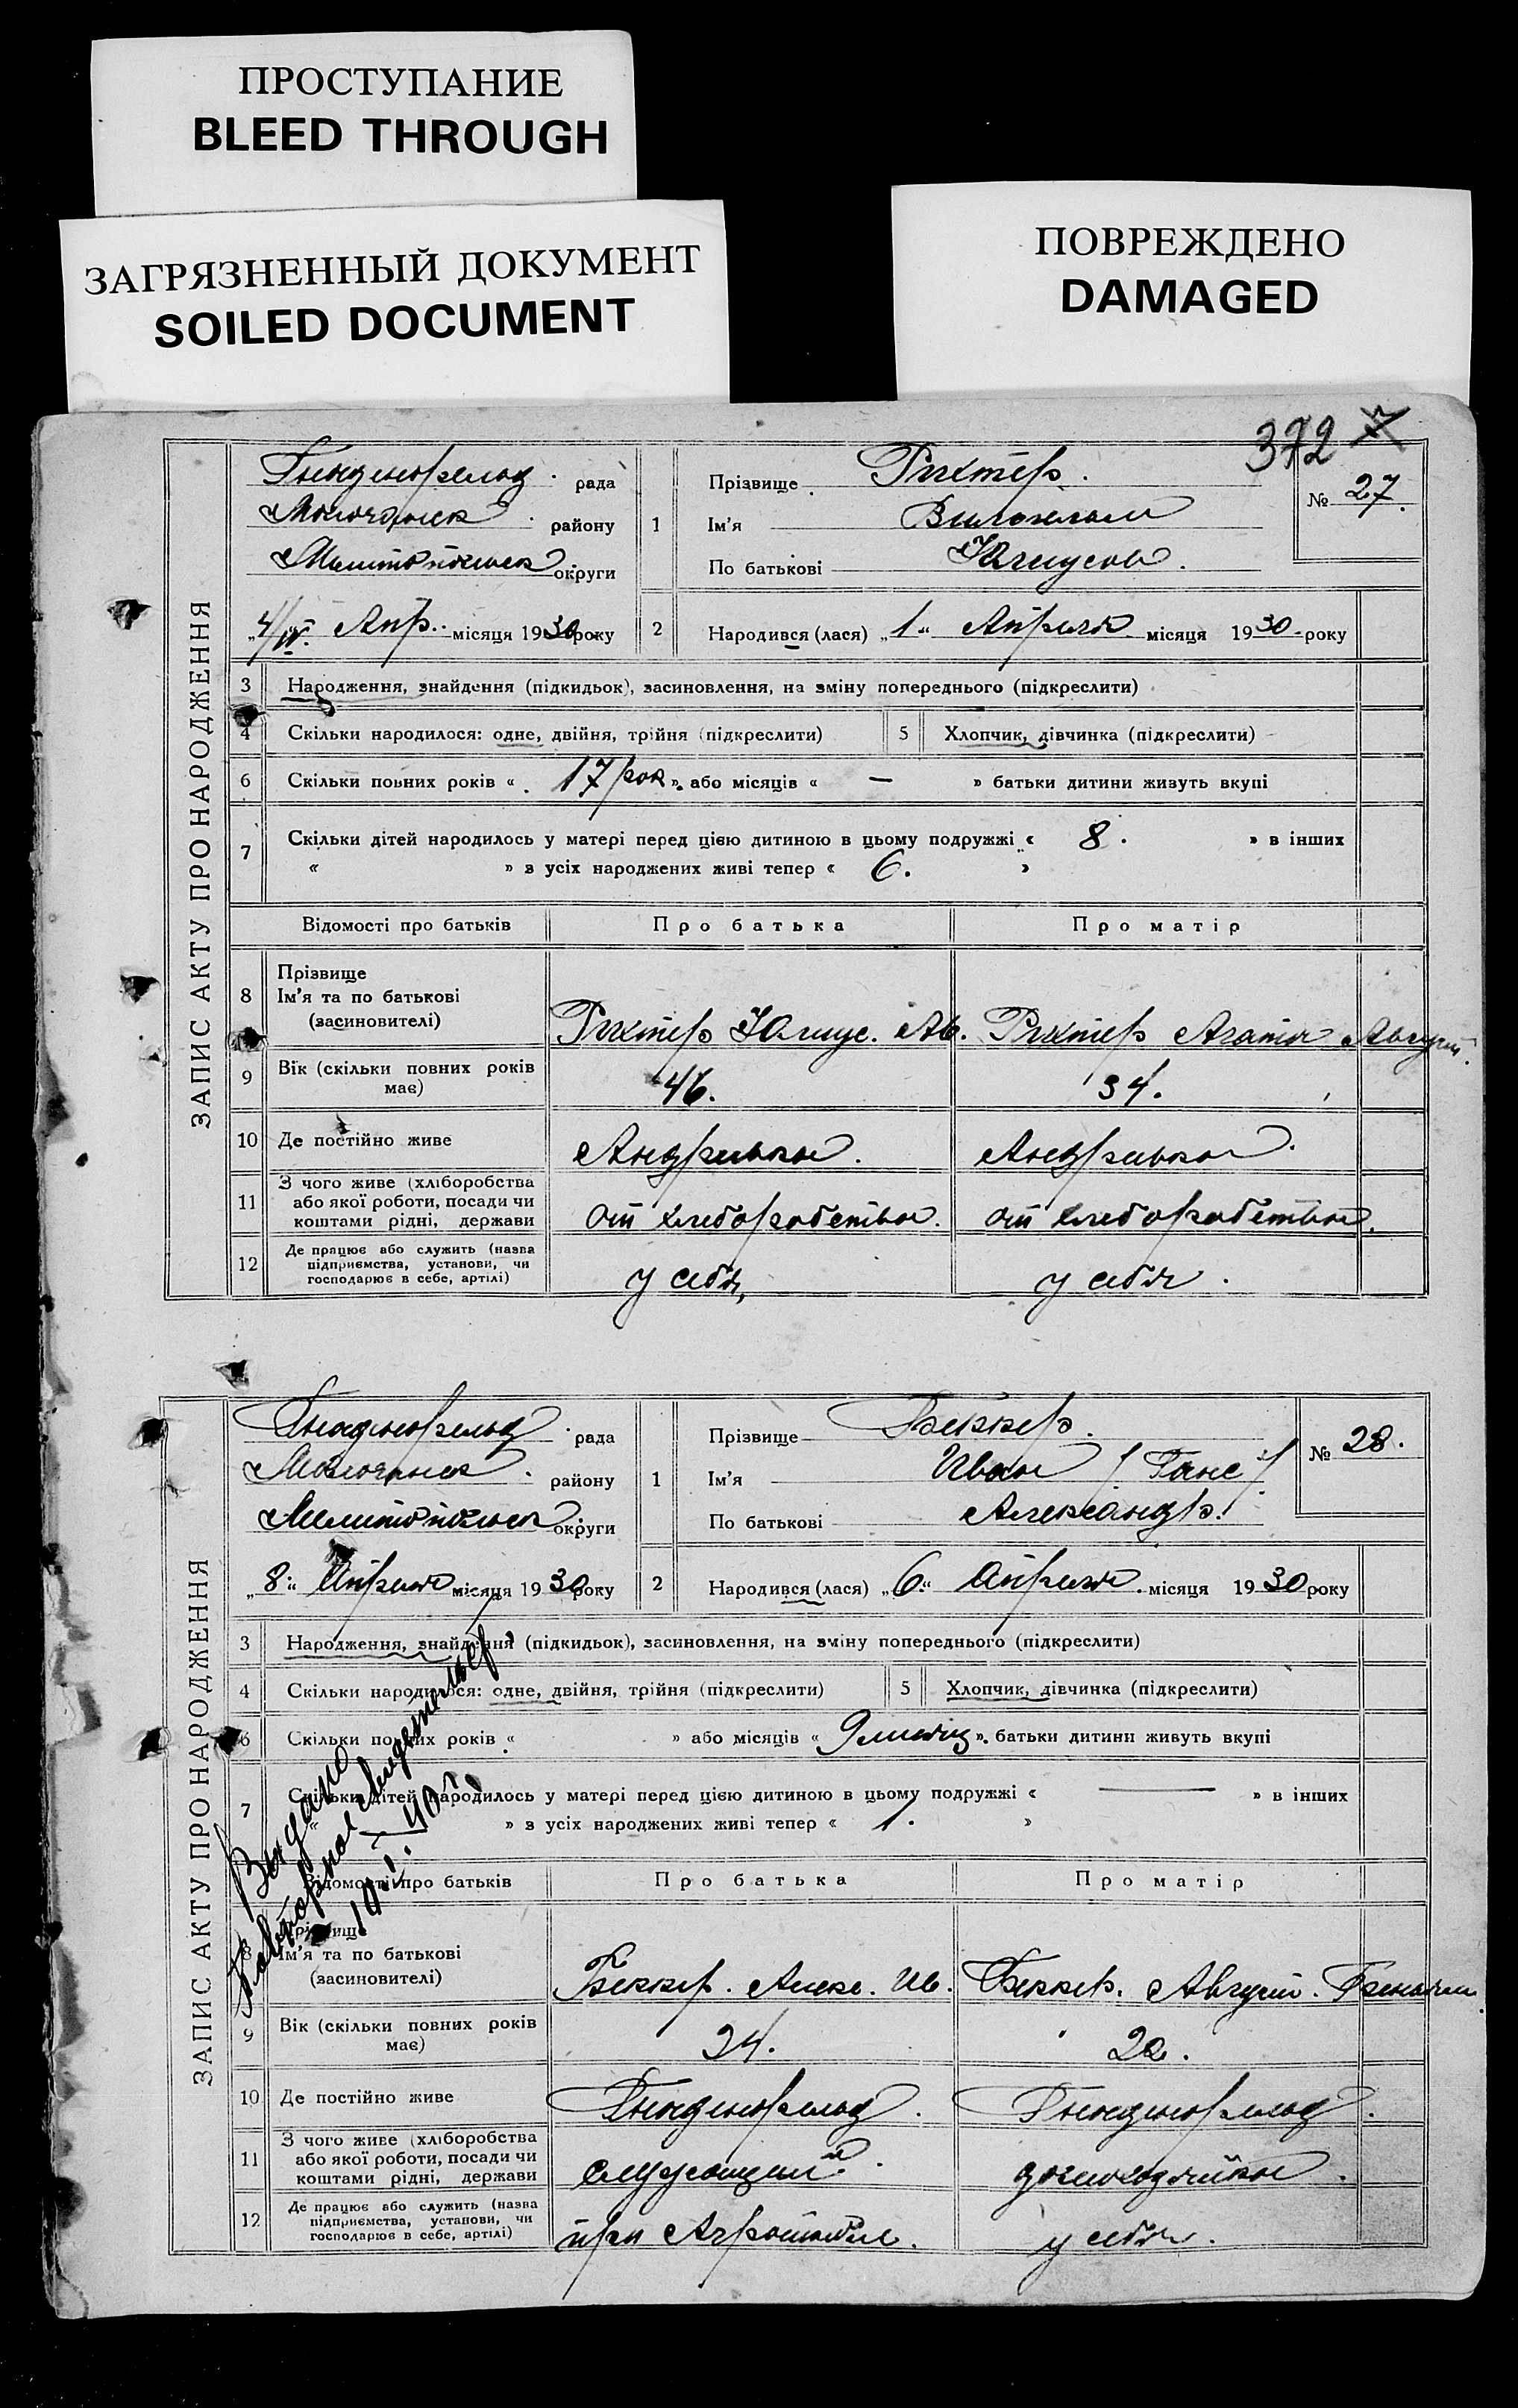 ПРОСТУПАНИЕ
BLEED THROUGH
ЗАГРЯЗНЕННЫЙ ДОКУМЕНТ
SOILED DOCUMENT
ПОВРЕЖДЕНО
DAMAGED
372
ЗАПИС АКТУ ПРО НАРОДЖЕННЯ
Гнаденфельд рада
Молочанск району
округи
"4/IV. Апр. місяця 1930 року
1
Прізвище Рихтер.
Ім'я Вильгельм
По батькові Юлиусов.
№ 27.
2 Народився (лася) „1" Апреля місяця 1930 року
3 Народження, знайдення (підкидьок), засиновлення, на зміну попереднього (підкреслити)
4 Скільки народилося: одне, двійня, трійня (підкреслити) 5 Хлопчик, дівчинка (підкреслити)
6 Скільки повних років « 17 рок ». або місяців « — » батьки дитини живуть вкупі
7 Скільки дітей народилось у матері перед цією дитиною в цьому подружжі « 8. » в інших
« » з усіх народжених живі тепер « 6. »
Відомості про батьків Про батька Про матір
8 Прізвище
Ім'я та по батькові
(засиновителі)
Рихтер Юлиус. Ав. Рихтер Агата Август.
9 Вік (скільки повних років має) 46. 34.
10 Де постійно живе
11 З чого живе (хліборобства
або якої роботи, посади чи
коштами рідні, держави
от хлеборобства. от хлеборобства.
12 Де працює або служить (назва
підприємства, установи, чи
господарює в себе, артілі)
у себя, у себя.
ЗАПИС АКТУ ПРО НАРОДЖЕННЯ
Гнаденфельд рада
Молочанск. району
округи
„8" Апреля місяця 1930 року
1
Прізвище Беккер.
Ім'я Иван / Ганс /
По батькові Александр.
№ 28.
2 Народився (лася) „6" Апреля місяця 1930 року
3 Народження, знайдення (підкидьок), засиновлення, на зміну попереднього (підкреслити)
4 Скільки народилося: одне, двійня, трійня (підкреслити) 5 Хлопчик, дівчинка (підкреслити)
6 Скільки повних років « » або місяців « 9 месяц ». батьки дитини живуть вкупі
7 Скільки дітей народилось у матері перед цією дитиною в цьому подружжі « — » в інших
« » з усіх народжених живі тепер « 1. »
Выдано
повторное свидетельство
Відомості про батьків Про батька Про матір
8 Прізвище
Ім'я та по батькові
(засиновителі)
Беккер. Алекс. Ив. Беккер. Август.
9 Вік (скільки повних років має) 24. 22.
10 Де постійно живе Гнаденфельд. Гнаденфельд.
11 З чого живе (хліборобства
або якої роботи, посади чи
коштами рідні, держави
служащий. домохозяйка.
12 Де працює або служить (назва
підприємства, установи, чи
господарює в себе, артілі)
при у себя.